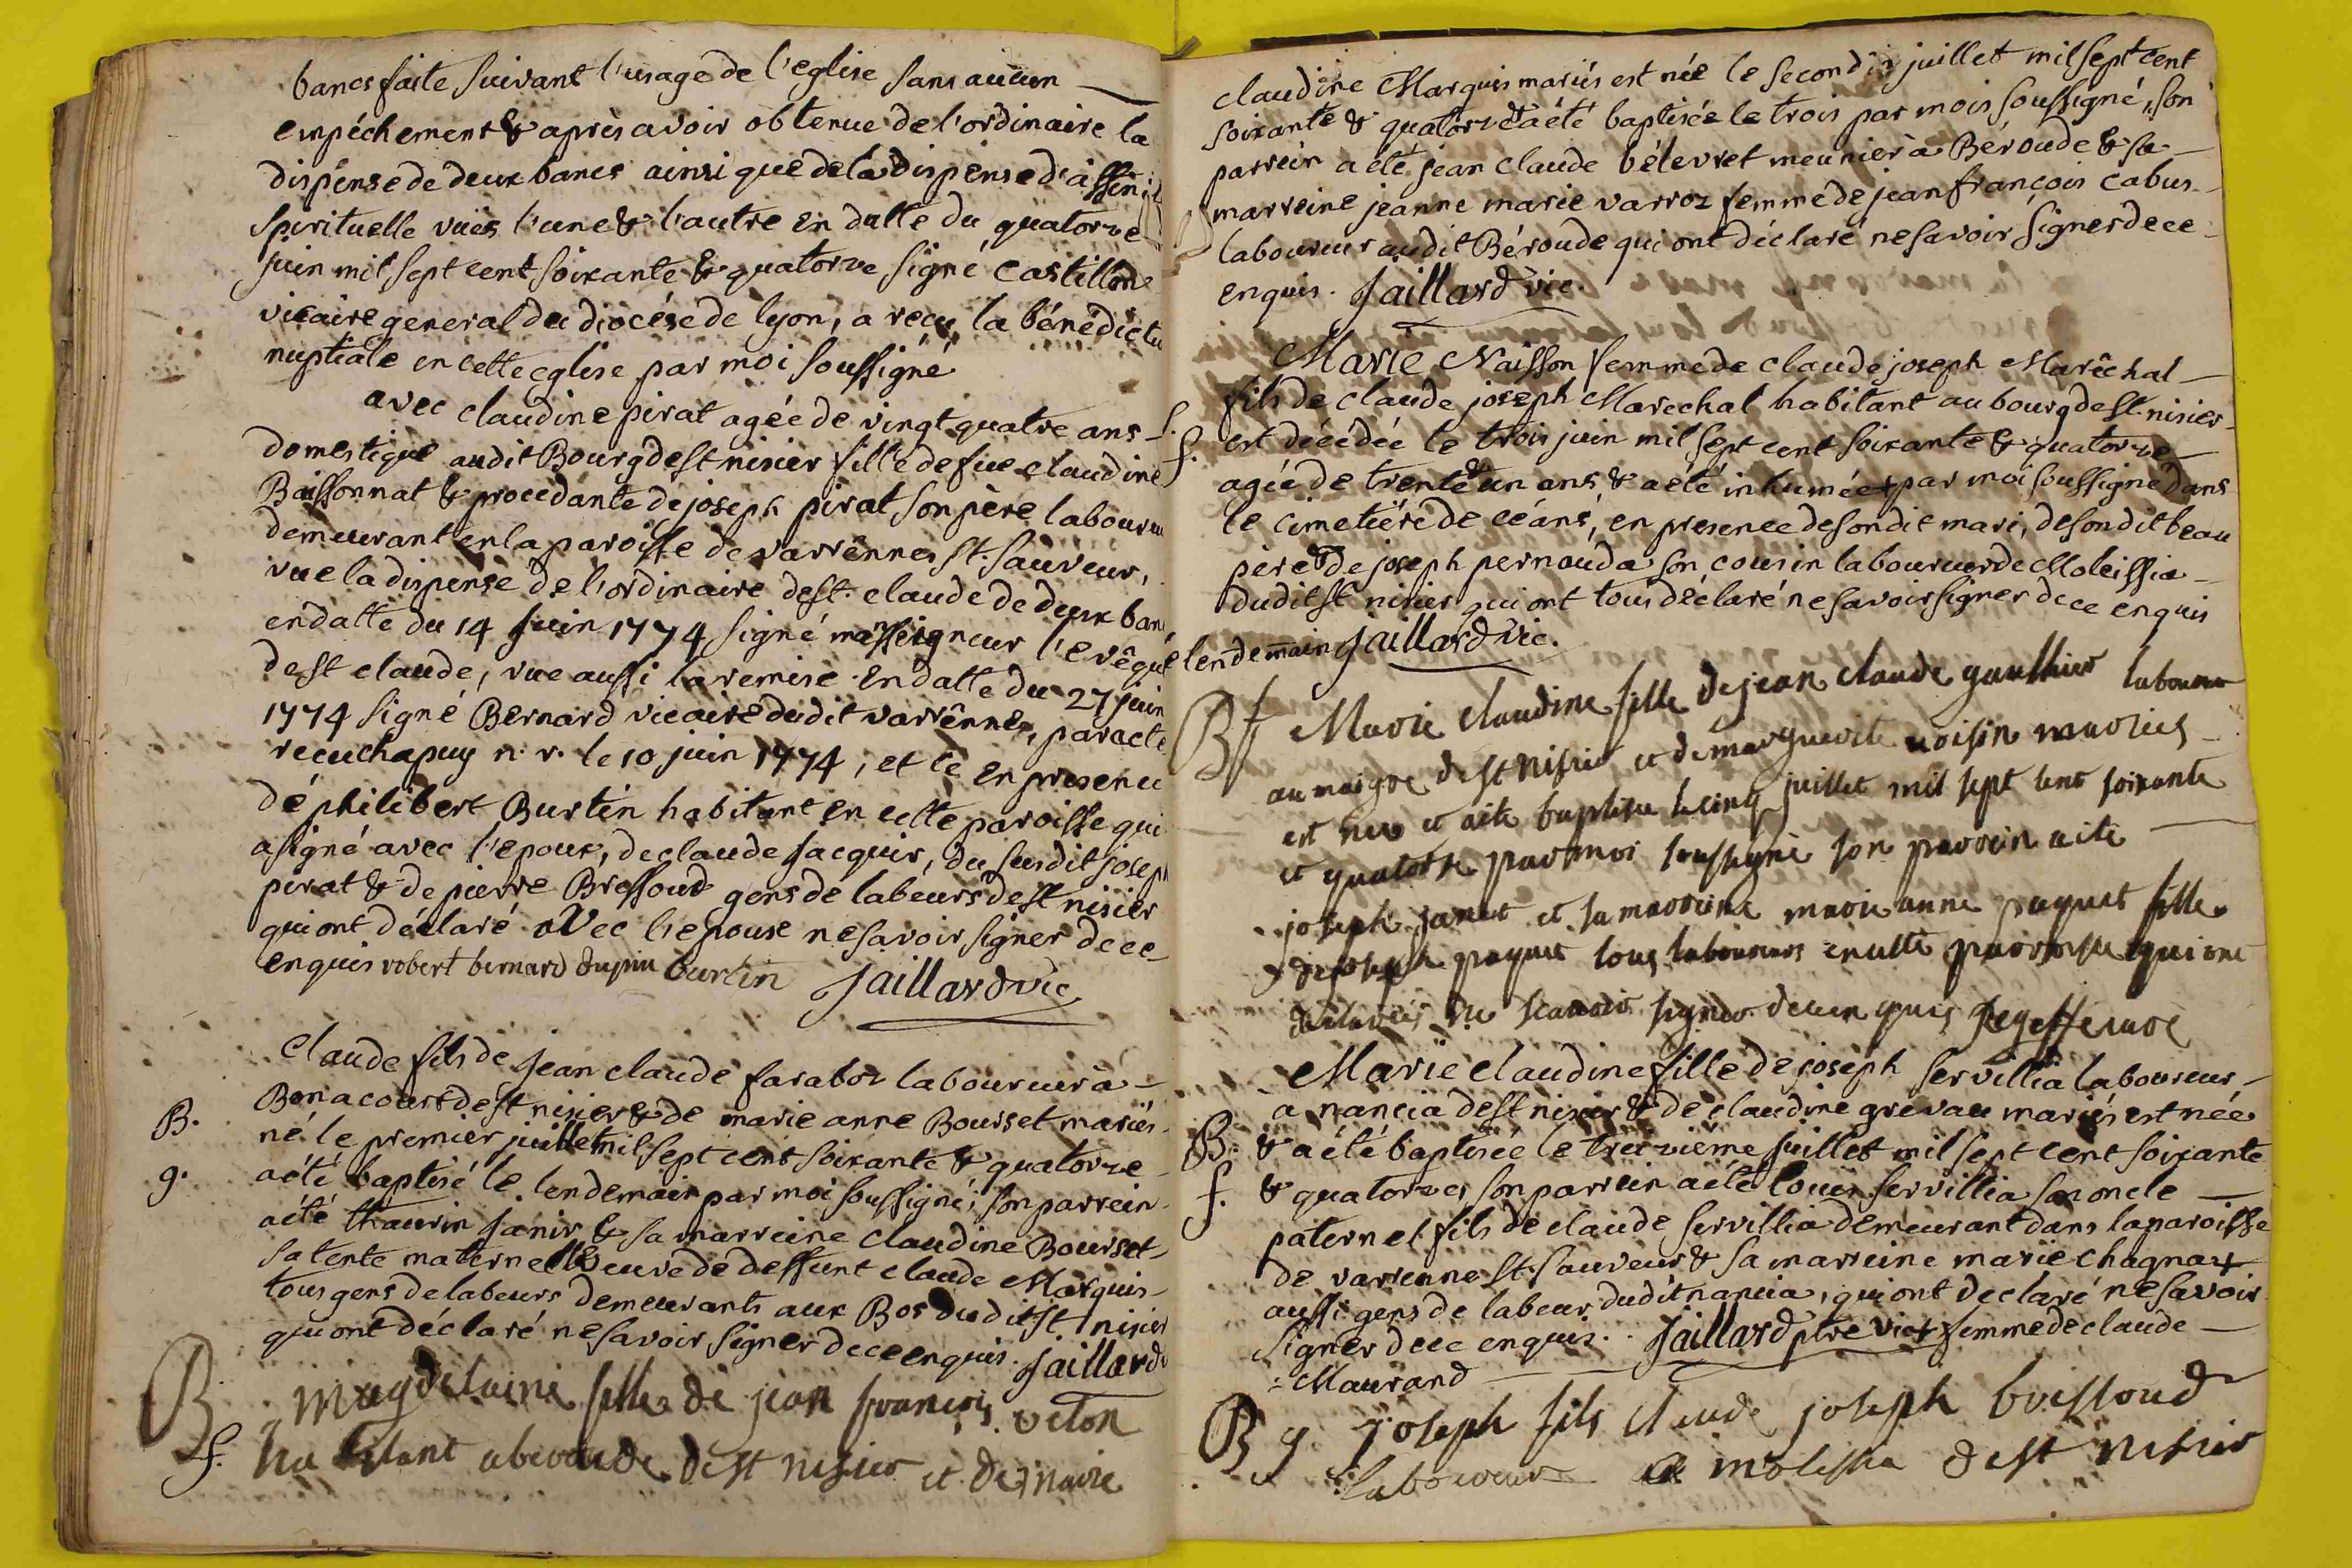 bancs faite suivant l'usage de l'eglise sans aucun
empéchement & après avoir obtenue de l'ordinaire la
dispense de deux bancs ainsi que de la dispense d'affinité
spirituelle vües l'une & l'autre en datte du quatorze
juin mil sept cent soixante & quatorze signé Castillon
vicaire general du diocése de lyon, a reçu la bénédictu
nuptiale en cette eglise par moi soussigné
avec claudine pirat agée de vingt quatre ans
domestique audit Bourg de st nisier fille de fue claudine
Baissonnat & procedante de joseph pirat son père laboureu
demeurant en la paroisse de varrênnes st. sauveur,
vue la dispense de l'ordinaire de st. claude de deux ban
en datte du 14 juin 1774 signé monseigneur l'evêque
de st claude, vue aussi la remise en datte du 27 juin
1774 signé Bernard vicaire dudit varrênnes, par acte
recu chapuy n. r. le 10 juin 1774, et ce en presence
de philibert Burtin habitant en cette paroisse qui
a signé avec l'epoux, de claude jacquis, du susdit josep
pirat & de pierre Bressoud gens de labeurs de st nisier
qui ont déclaré avec l'epouse ne savoir signer de ce
enquis robert bernard dupuu burtin Jaillard vic
claude fils de jean claude faraboz laboureur à
B. Bonacourt de st nisier & de marie anne Bourset mariés
né le premier juillet mil sept cent soixante & quatorze
g. a été baptisé le lendemain par moi soussigné; son parrein
a été thaurin janir & sa marreine claudine Bourset
sa tente maternelle veuve de deffunt claude Marquis
tous gens de labeurs demeurants aux Bos dudit st nisier
qui ont déclaré ne savoir signer de ce enquis. Jaillard v
B magdelaine fille de jean francois veton
f. habitant a beroude de st nisier et de marie
claudine Marquis mariés est née le second juillet mil sept cent
soixante & quatorze & a été baptisée le trois par mois soussigné, son
parrein a été jean claude bélevret meunier à Béroude & sa
marreine jeanne marie varroz femme de jean françois cabus
laboureur audit Béroude qui ont déclaré ne savoir signer de ce
enquis. Jaillard vic.
Marie Naisson femme de claude joseph Marêchal
S. fils de claude joseph Marechal habitant au bourg de st. nisier
f. est décédée le trois juin mil sept cent soixante & quatorze
agée de trente & un ans & a été inhumée + par moi soussigné dans
le cimetiére de céans, en presence de son dit mari, de son dit beau
père & de joseph pernauda son cousin laboureur de Moleissia
dudit st nisier qui ont tous déclaré ne savoir signer de ce enquis
lendemain Jaillard vic.
B f Marie claudine fille de jean claude gauthier laboureur
au maigre de st nisier et de marguerite voisin maries
est nee et a ete baptisee le cinq juillet mil sept cent soixante
et quatorze par moi soussigne son parrein a ete
joseph janet et sa marreine marie anne paquet fille
de joseph paquet tous laboureurs en cette parroisse qui ont
declarés ne scavoir signer de ce enquis
Marie claudine fille de joseph servillia laboureur
à nancia de st nisier & de claudine grevau mariés est née
B. & a été baptisée le treizième juillet mil sept cent soixante
f. & quatorze, son parrein a été louis servillia son oncle
paternel fils de claude servillia demeurant dans la paroisse
de varrenne st. sauveur & sa marreine marie chagnat +
aussi gens de labeur dudit nancia, qui ont declaré ne savoir
signer de ce enquis. Jaillard ptre vic + femme de claude
Maurand
B g joseph fils claude joseph bressoud
laboureur a molissia de st nisier